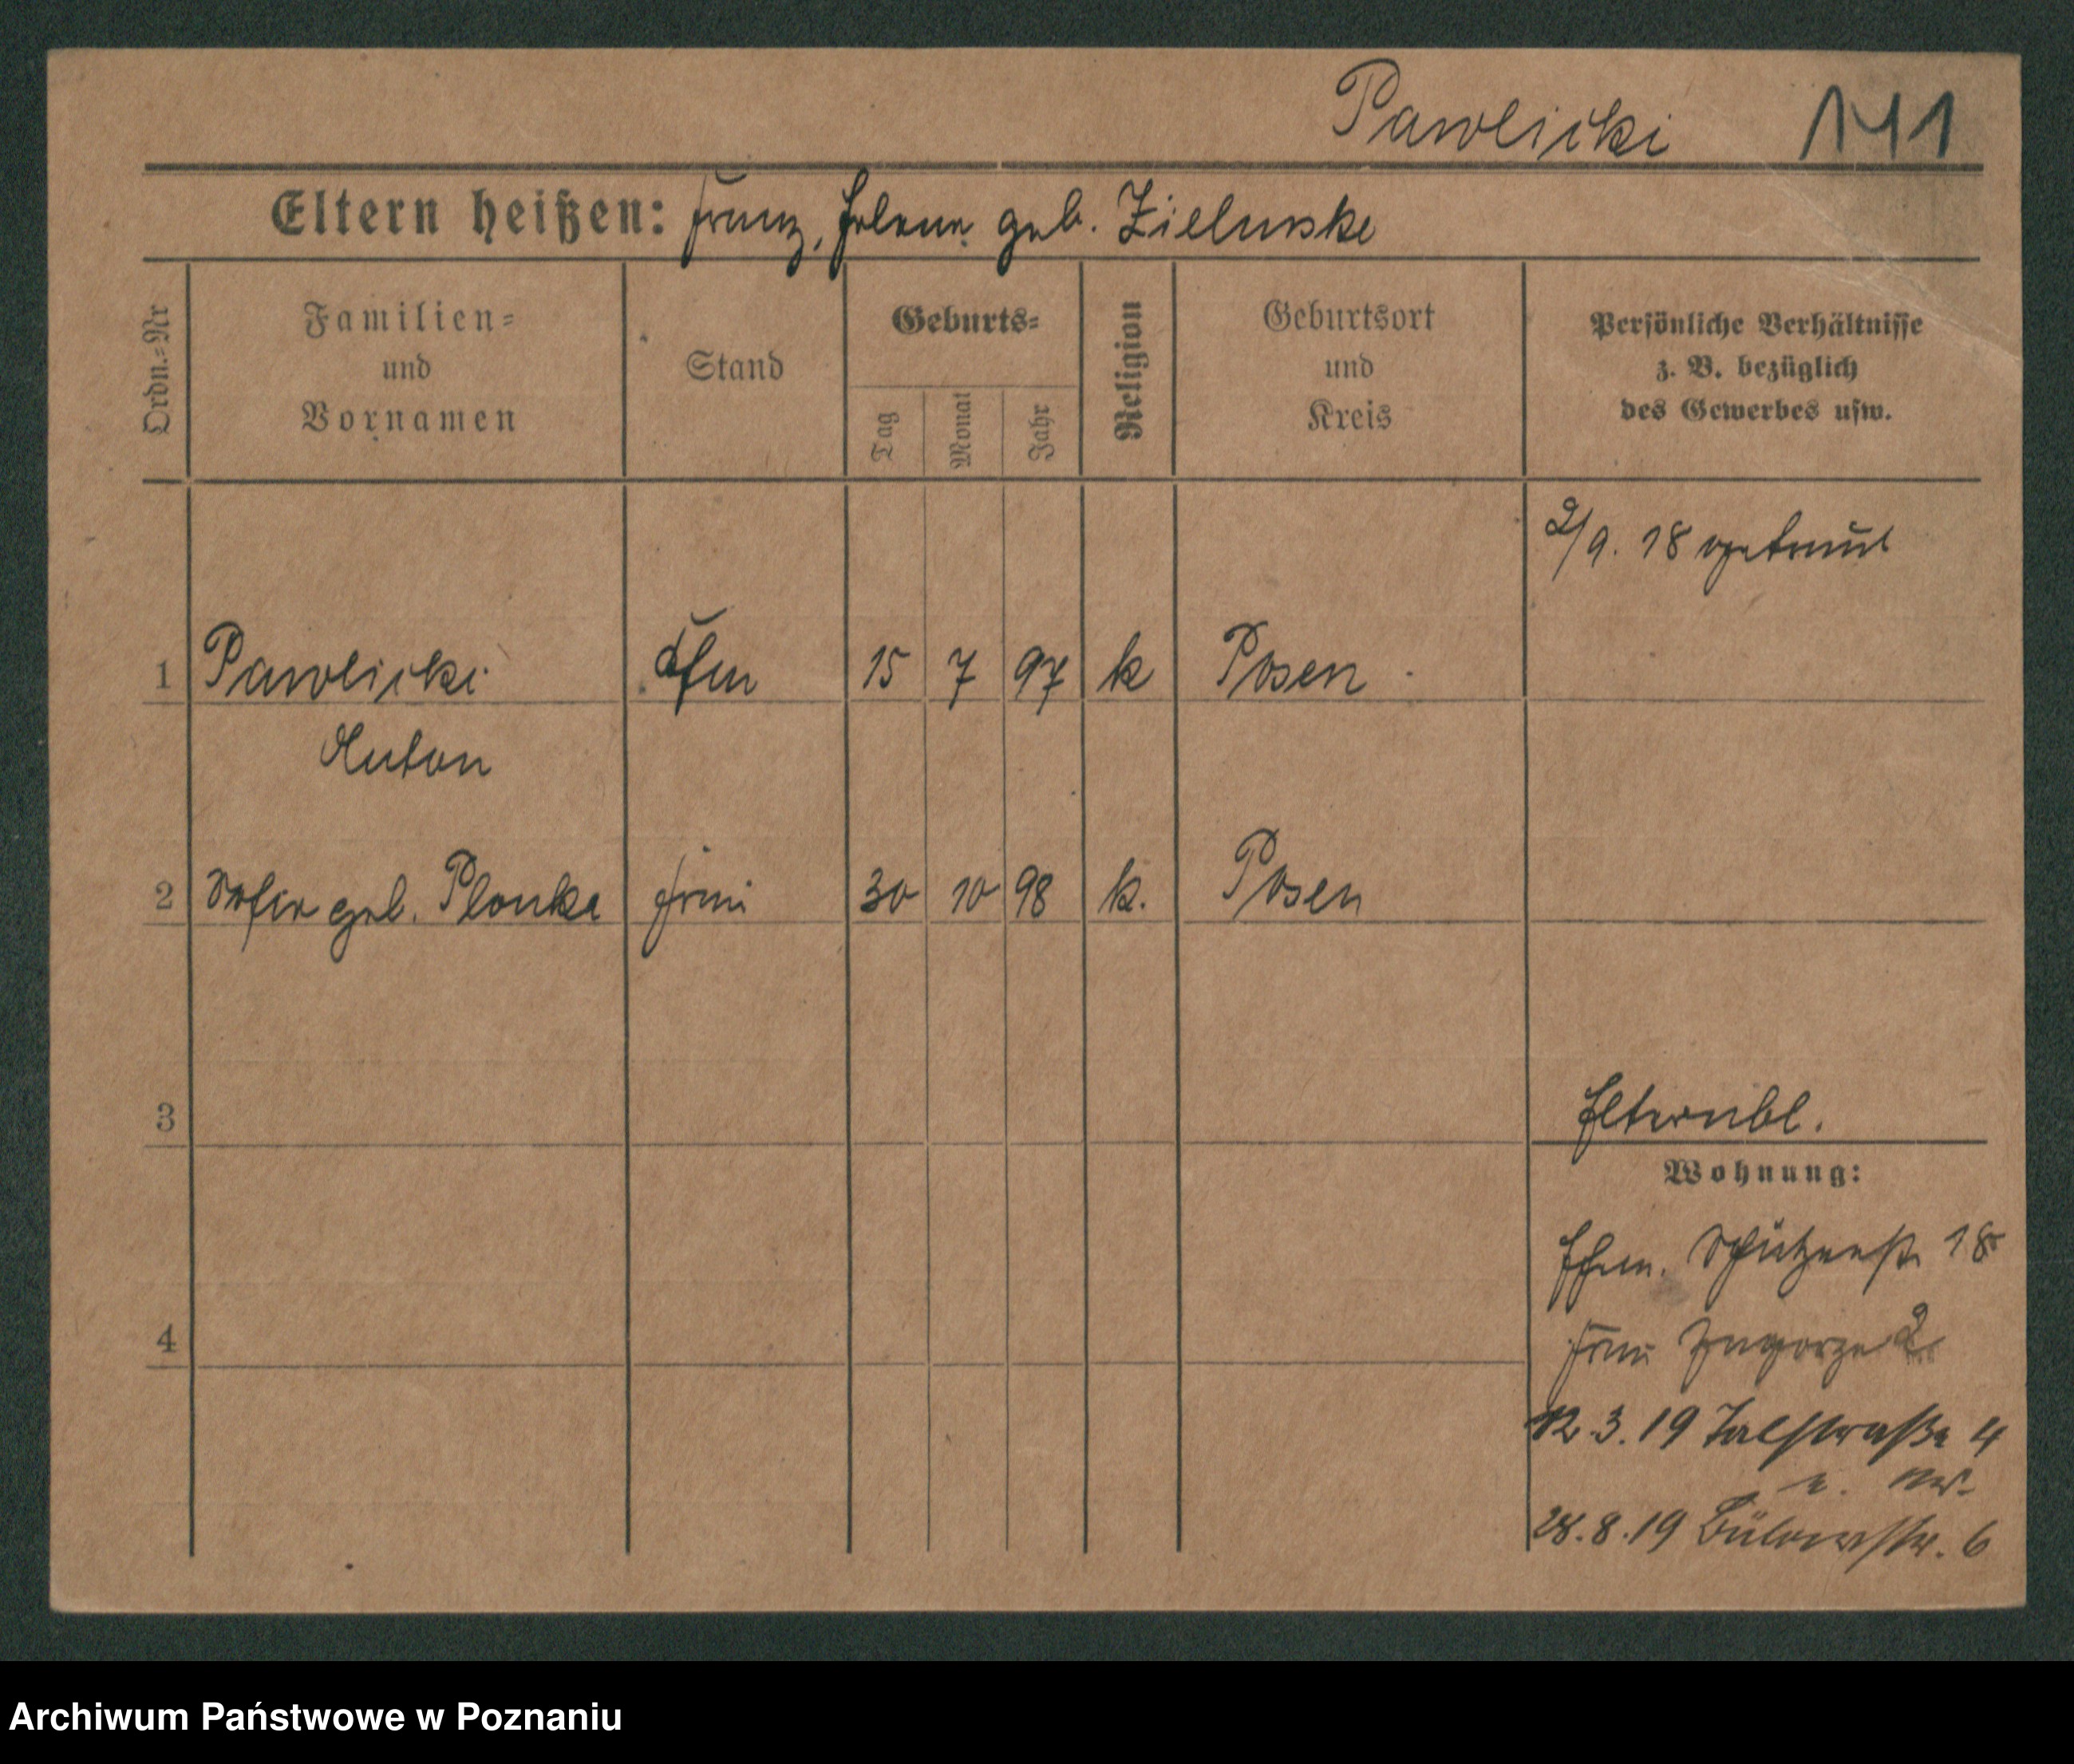 Pawlicki 141
Eltern heißen: Franz, Helena geb. Zielinska
Ordn.=Nr
Familien=
und
Vornamen
Stand
Geburts=
Tag
Monat
Jahr
Religion
Geburtsort
und
Kreis
Persönliche Verhältnisse
z. B. bezüglich
des Gewerbes usw.
2/9. 18 getraut
1 Pawlicki 15 7 97 k Posen
Anton
2 Sofie geb. Plonka Frau 30 10 98 k. Posen
3
Elternbl.
Wohnung:
Ehem. Schützenstr 18
4
Frau Zagorze 2
12.3.19 Talstraße 4
28.8.19 Bülowstr. 6
Archiwum Państwowe w Poznaniu